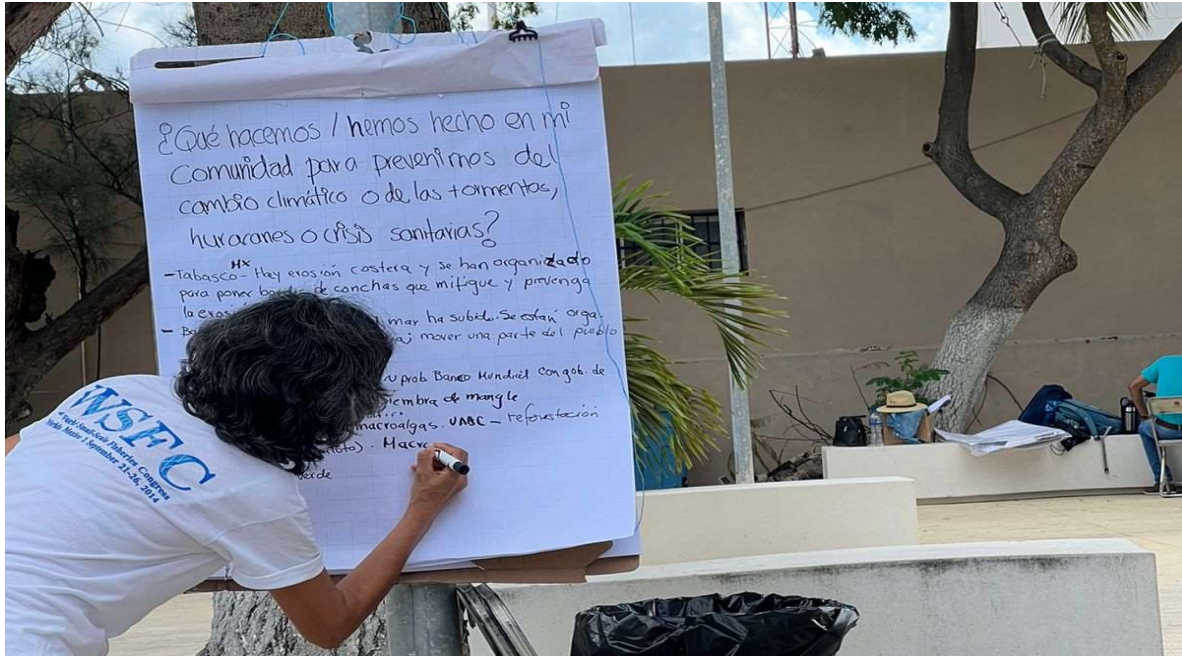 ¿Qué hacemos / hemos hecho en mi
Comunidad para prevenirnos del
cambio climático o de las tormentas,
huracanes o crisis sanitarias?
- Tabasco MX - Hay erosión costera y se han organizado
para poner de conchas que mitigue y prevenga
la
mar ha subido. Se están orga-
mover una parte del pueblo
prob Banco Mundial con gob. de
siembra de mangle
macroalgas. UABC - reforestación
Macro
WSFC
World Small-Scale Fisheries Congress
Mérida, México | September 21-26, 2014